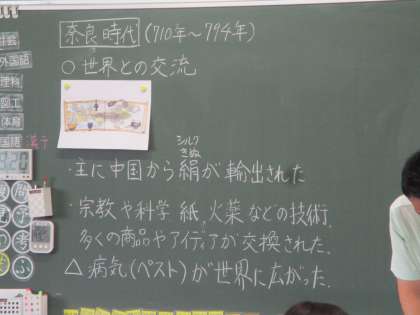 奈良時代(710年〜794年)
○世界との交流
シルク
きぬ
・主に中国から絹が輸出された
・宗教や科学 紙、火薬などの技術、
多くの商品やアイディアが交換された。
△病気(ペスト)が世界に広がった。
社会
外国語
理科
図工
体育
国語